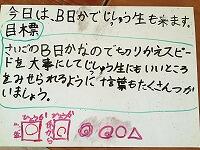 今日は、BB日かでじゅう生も来ます。
目標
さいごのBB日かなのでちりかえスピー
ドを大事にしてじゅう生にもいいところ
をみせられるように付箋もたくさんつか
いましょう。